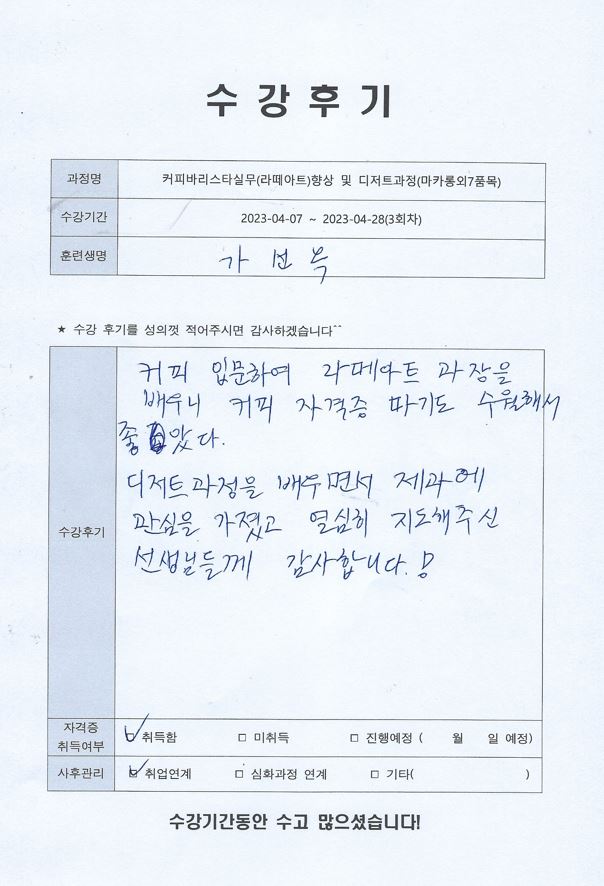 수강후기
과정명 커피바리스타실무(라떼아트)향상 및 디저트과정(마카롱외7품목)
수강기간 2023-04-07 ~ 2023-04-28(3회차)
훈련생명 가 선 목
★ 수강 후기를 성의껏 적어주시면 감사하겠습니다^^
수강후기
커피 입문하여 라떼아트 과장을
배우니 커피 자격증 따기도 수월해서
좋았다.
디저트과정을 배우면서 제과에
관심을 가졌고 열심히 지도해주신
선생님들께 감사합니다.!
자격증 취득여부 ☑ 취득함 □ 미취득 □ 진행예정 ( 월 일 예정)
사후관리 ☑ 취업연계 □ 심화과정 연계 □ 기타( )
수강기간동안 수고 많으셨습니다!